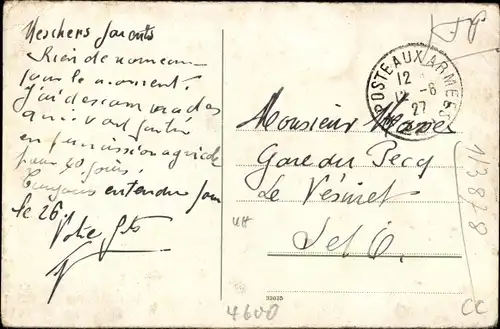 Mes chers parents
Rien de nouveau
pour le moment.
J'ai des camarades
qui vont partir
en permission agricole
pour 40 jours.
Toujours entendu pour
le 26.
Votre fils
FP
POSTE AUX ARMEES
12
12 - 6
27
Monsieur
Gare du Pecq
Le Vésinet
S et O.
4600
113828
CC